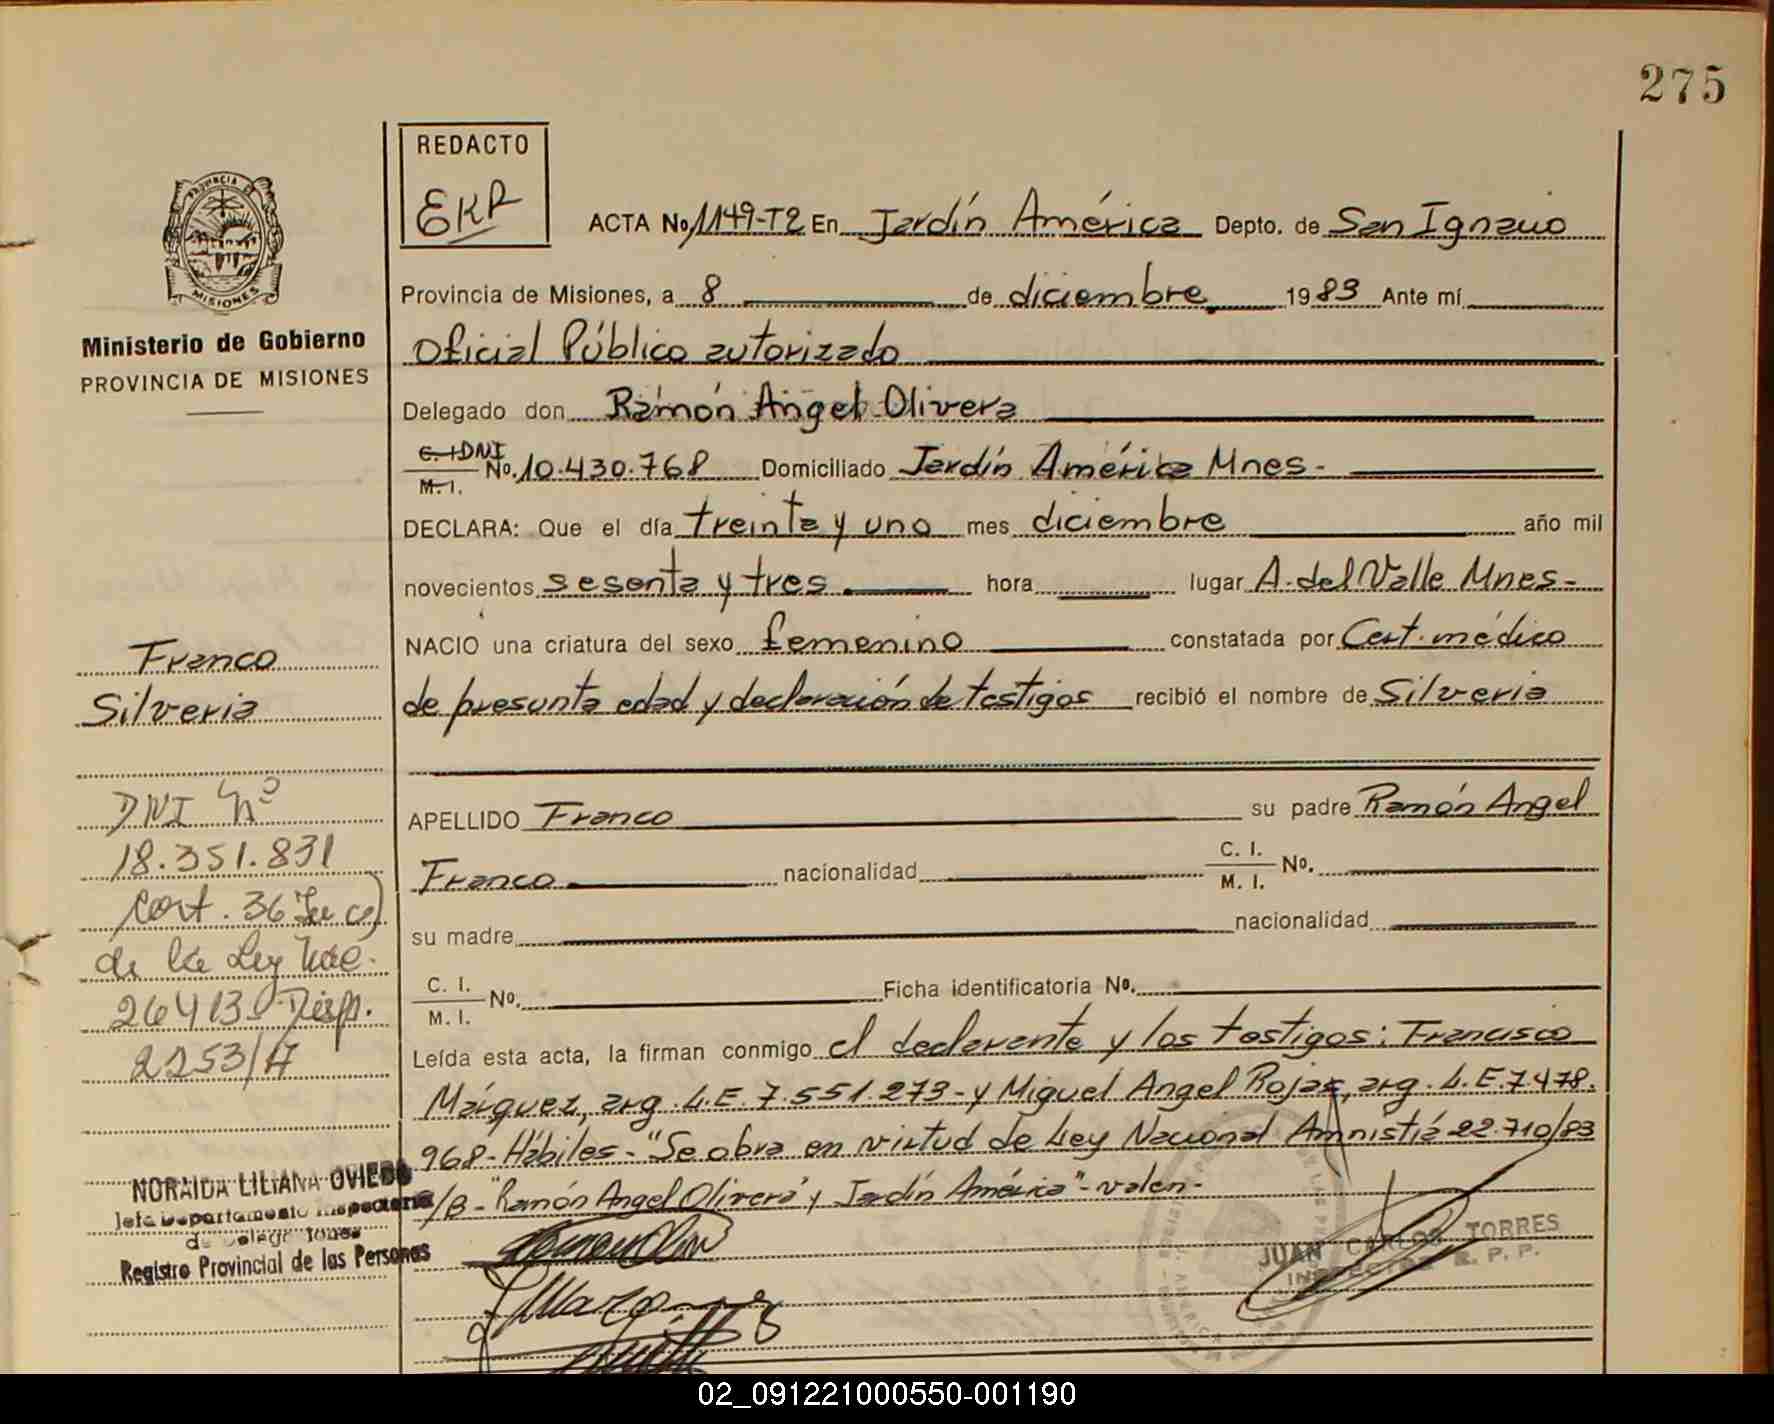 275
REDACTO
EKR
PROVINCIA DE
MISIONES
ACTA No, 1149-T2 En Jardín América Depto. de San Ignacio
Provincia de Misiones, a 8 de diciembre 1983 Ante mí
Ministerio de Gobierno
PROVINCIA DE MISIONES
Oficial Público autorizado
Delegado don Ramón Angel Olivera
C. I DNI
M. I. No. 10.430.768 Domiciliado Jardín América Mnes-
DECLARA: Que el día treinta y uno mes diciembre año mil
novecientos sesenta y tres hora lugar A. del Valle Mnes-
NACIO una criatura del sexo femenino constatada por Cert. médico
de presunta edad y declaración de testigos recibió el nombre de Silveria
APELLIDO Franco su padre Ramón Angel
Franco nacionalidad C. I. M. I. No.
su madre nacionalidad
C. I. M. I. No. Ficha identificatoria No.
Leída esta acta, la firman conmigo el declarante y los testigos: Francisco
Márquez, arg. L.E. 7.551.273- y Miguel Angel Rojas, arg. L.E. 7.478.
968- Hábiles- "Se obra en virtud de Ley Nacional Amnistía 22.710/83
S/B- "Ramón Angel Olivera" y Jardín América"- valen-
JUAN CARLOS TORRES
INSPECTOR R. P. P.
Franco
Silveria
DNI Nº
18.351.831
de la Ley
26413 Disp.
2253/
NORAIDA LILIANA OVIEDO
Jefa Departamento Inspectoria
de Delegaciones
Registro Provincial de las Personas
02_091221000550-001190